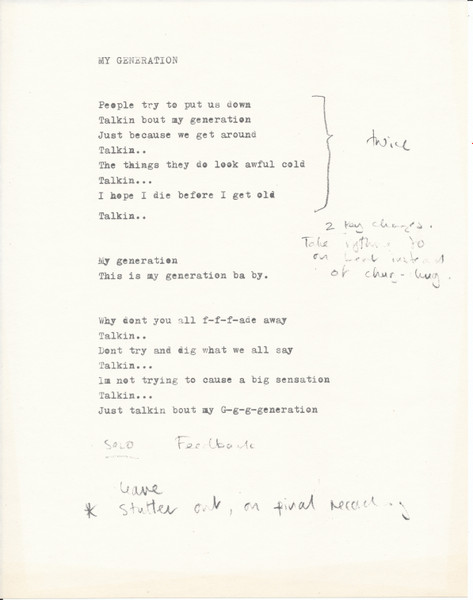 MY GENERATION
People try to put us down
Talkin bout my generation
Just because we get around
Talkin..
The things they do look awful cold
Talkin...
I hope I die before I get old
Talkin..
twice
2 key changes.
Take to
on beat instead
of chug-
My generation
This is my generation ba by.
Why dont you all f-f-f-ade away
Talkin..
Dont try and dig what we all say
Talkin...
Im not trying to cause a big sensation
Talkin...
Just talkin bout my G-g-g-generation
SOLO Feedback
Leave
* Stutter out, on final recording